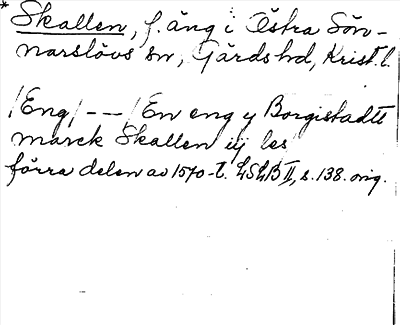 * Skallen, f. äng i Östra Sön-
narslövs sn, Gärds hd, Krist. l.
/Eng/ -- /En eng y Borgistadtt
marck Skallen iij les
förra delen av 1570-t. LSLB II, s. 138. orig.